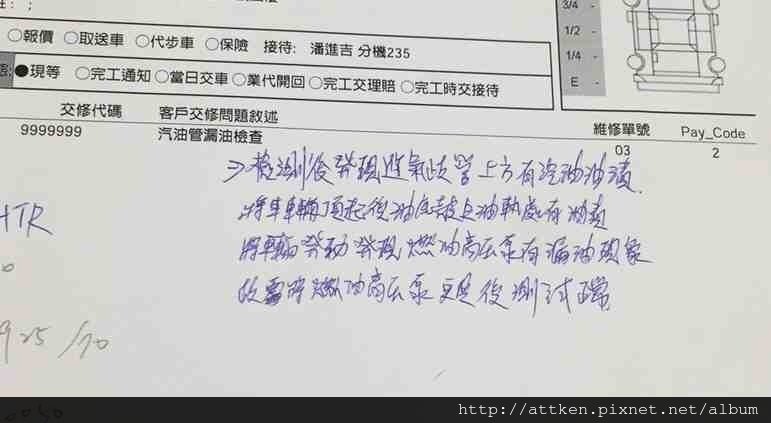 註: ;
3/4 -
○報價 ○取送車 ○代步車 ○保險 接待: 潘進吉 分機235
1/2 -
1/4 -
●現等 ○完工通知 ○當日交車 ○業代開回 ○完工交理賠 ○完工時交接待
E -
交修代碼 客戶交修問題敘述 維修單號 Pay_Code
9999999 汽油管漏油檢查 03 2
→檢測後發現進氣歧管上方有汽油油漬
將車輛頂起後油底殼上油軌處有油漬
將車輛發動發現燃油高壓泵有漏油現象
故需將燃油高壓泵更換後測試正常
HTR
925/70
http://attken.pixnet.net/album